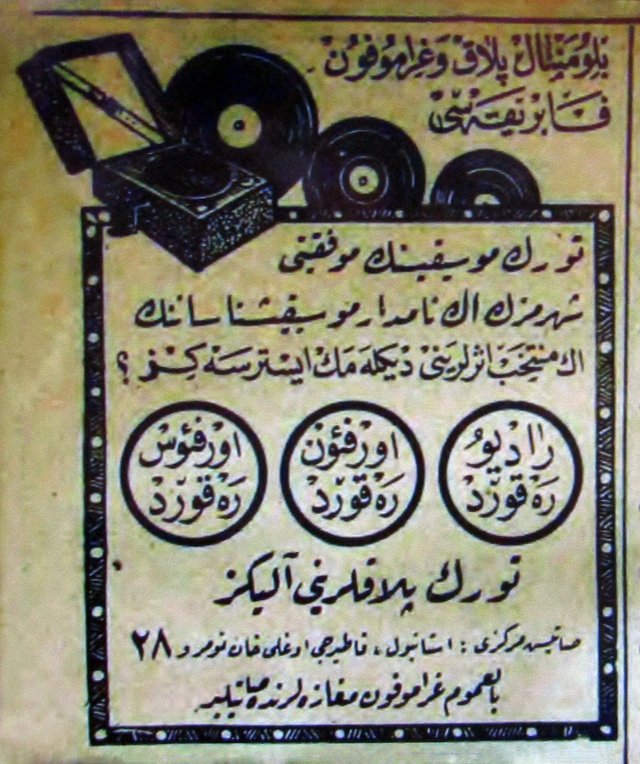 بلومنتال پلاق و غراموفون
فابریقه سی
تورك موسیقیسنك موفقیتی
شهرمزك اك نامدار موسیقیشناسانك
اك منتخب اثرلرینی دیکله مك ایسترسه کز ؟
رادیو
ره قورد
اورفئون
ره قورد
اورفئوس
ره قورد
تورك پلاقلرینی آلیکز
صاتیش مرکزی : استانبول ، قاطیرجی اوغلی خان نومرو ۲۸
بالعموم غراموفون مغازه لرنده صاتیلیر